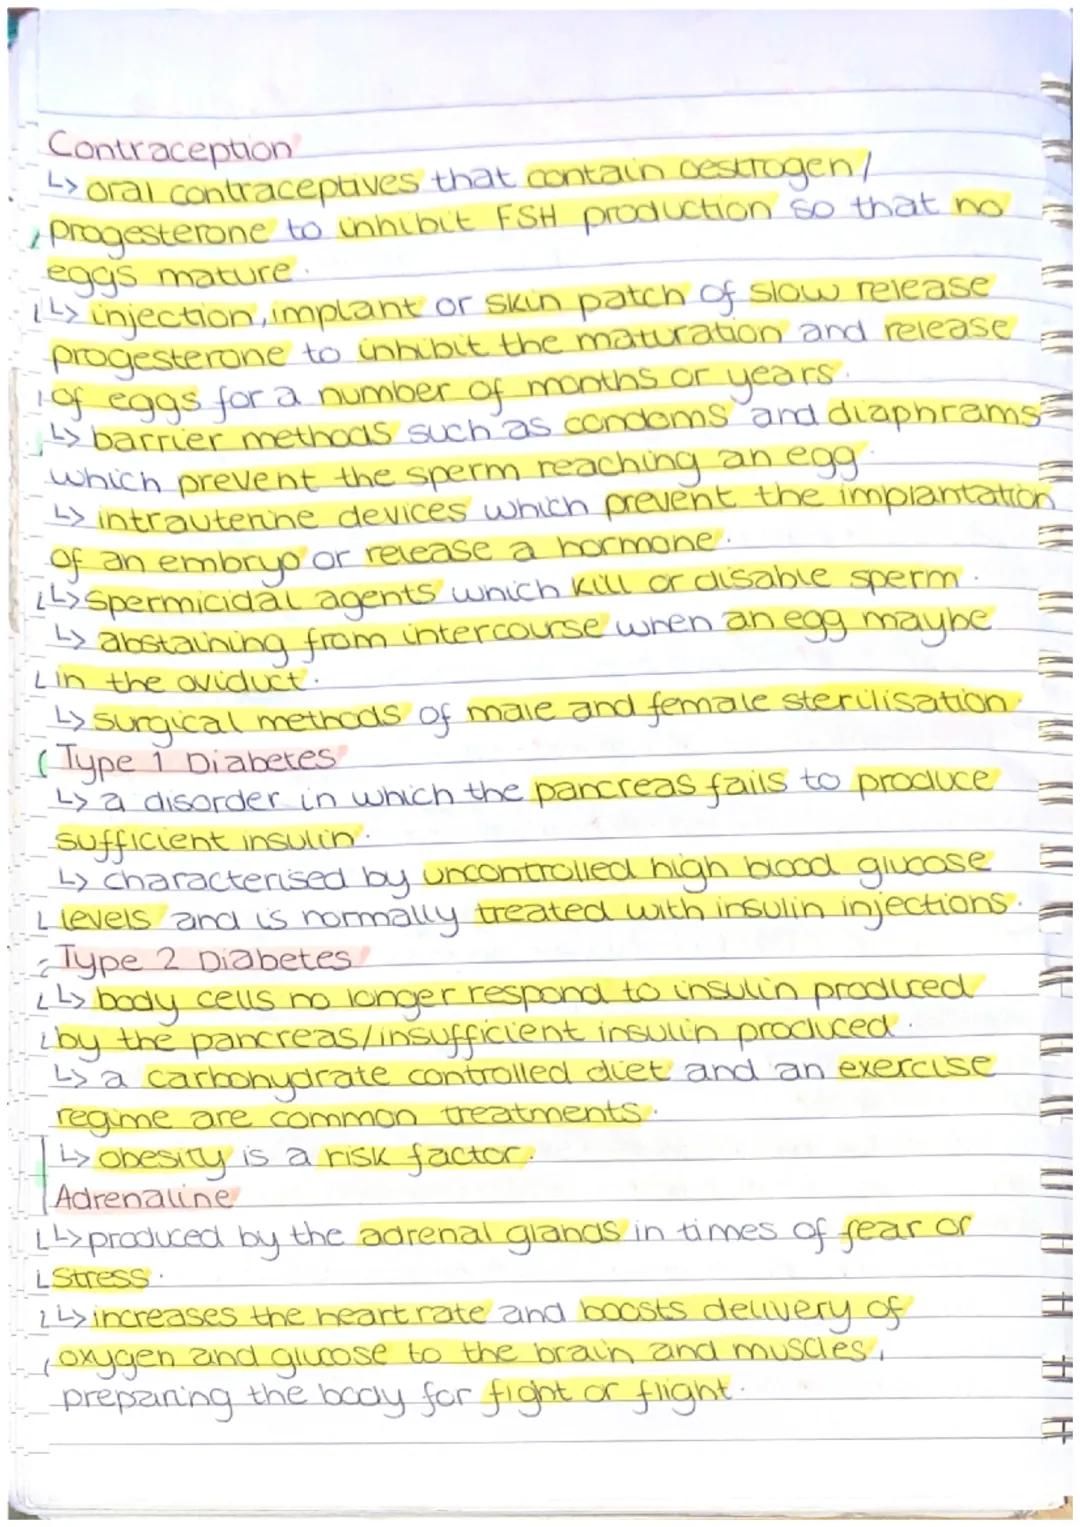 Contraception
↳ oral contraceptives that contain oestrogen/
progesterone to inhibit FSH production so that no
eggs mature.
↳ injection, implant or skin patch of slow release
progesterone to inhibit the maturation and release
of eggs for a number of months or years.
↳ barrier methods such as condoms and diaphrams
which prevent the sperm reaching an egg.
↳ intrauterine devices which prevent the implantation
of an embryo or release a hormone.
↳ spermicidal agents which kill or disable sperm.
↳ abstaining from intercourse when an egg maybe
in the oviduct.
↳ surgical methods of male and female sterilisation.
Type 1 Diabetes
↳ a disorder in which the pancreas fails to produce
sufficient insulin.
↳ characterised by uncontrolled high blood glucose
levels and is normally treated with insulin injections.
Type 2 Diabetes
↳ body cells no longer respond to insulin produced
by the pancreas/insufficient insulin produced.
↳ a carbohydrate controlled diet and an exercise
regime are common treatments.
↳ obesity is a risk factor.
Adrenaline
↳ produced by the adrenal glands in times of fear or
stress.
↳ increases the heart rate and boosts delivery of
oxygen and glucose to the brain and muscles,
preparing the body for fight or flight.